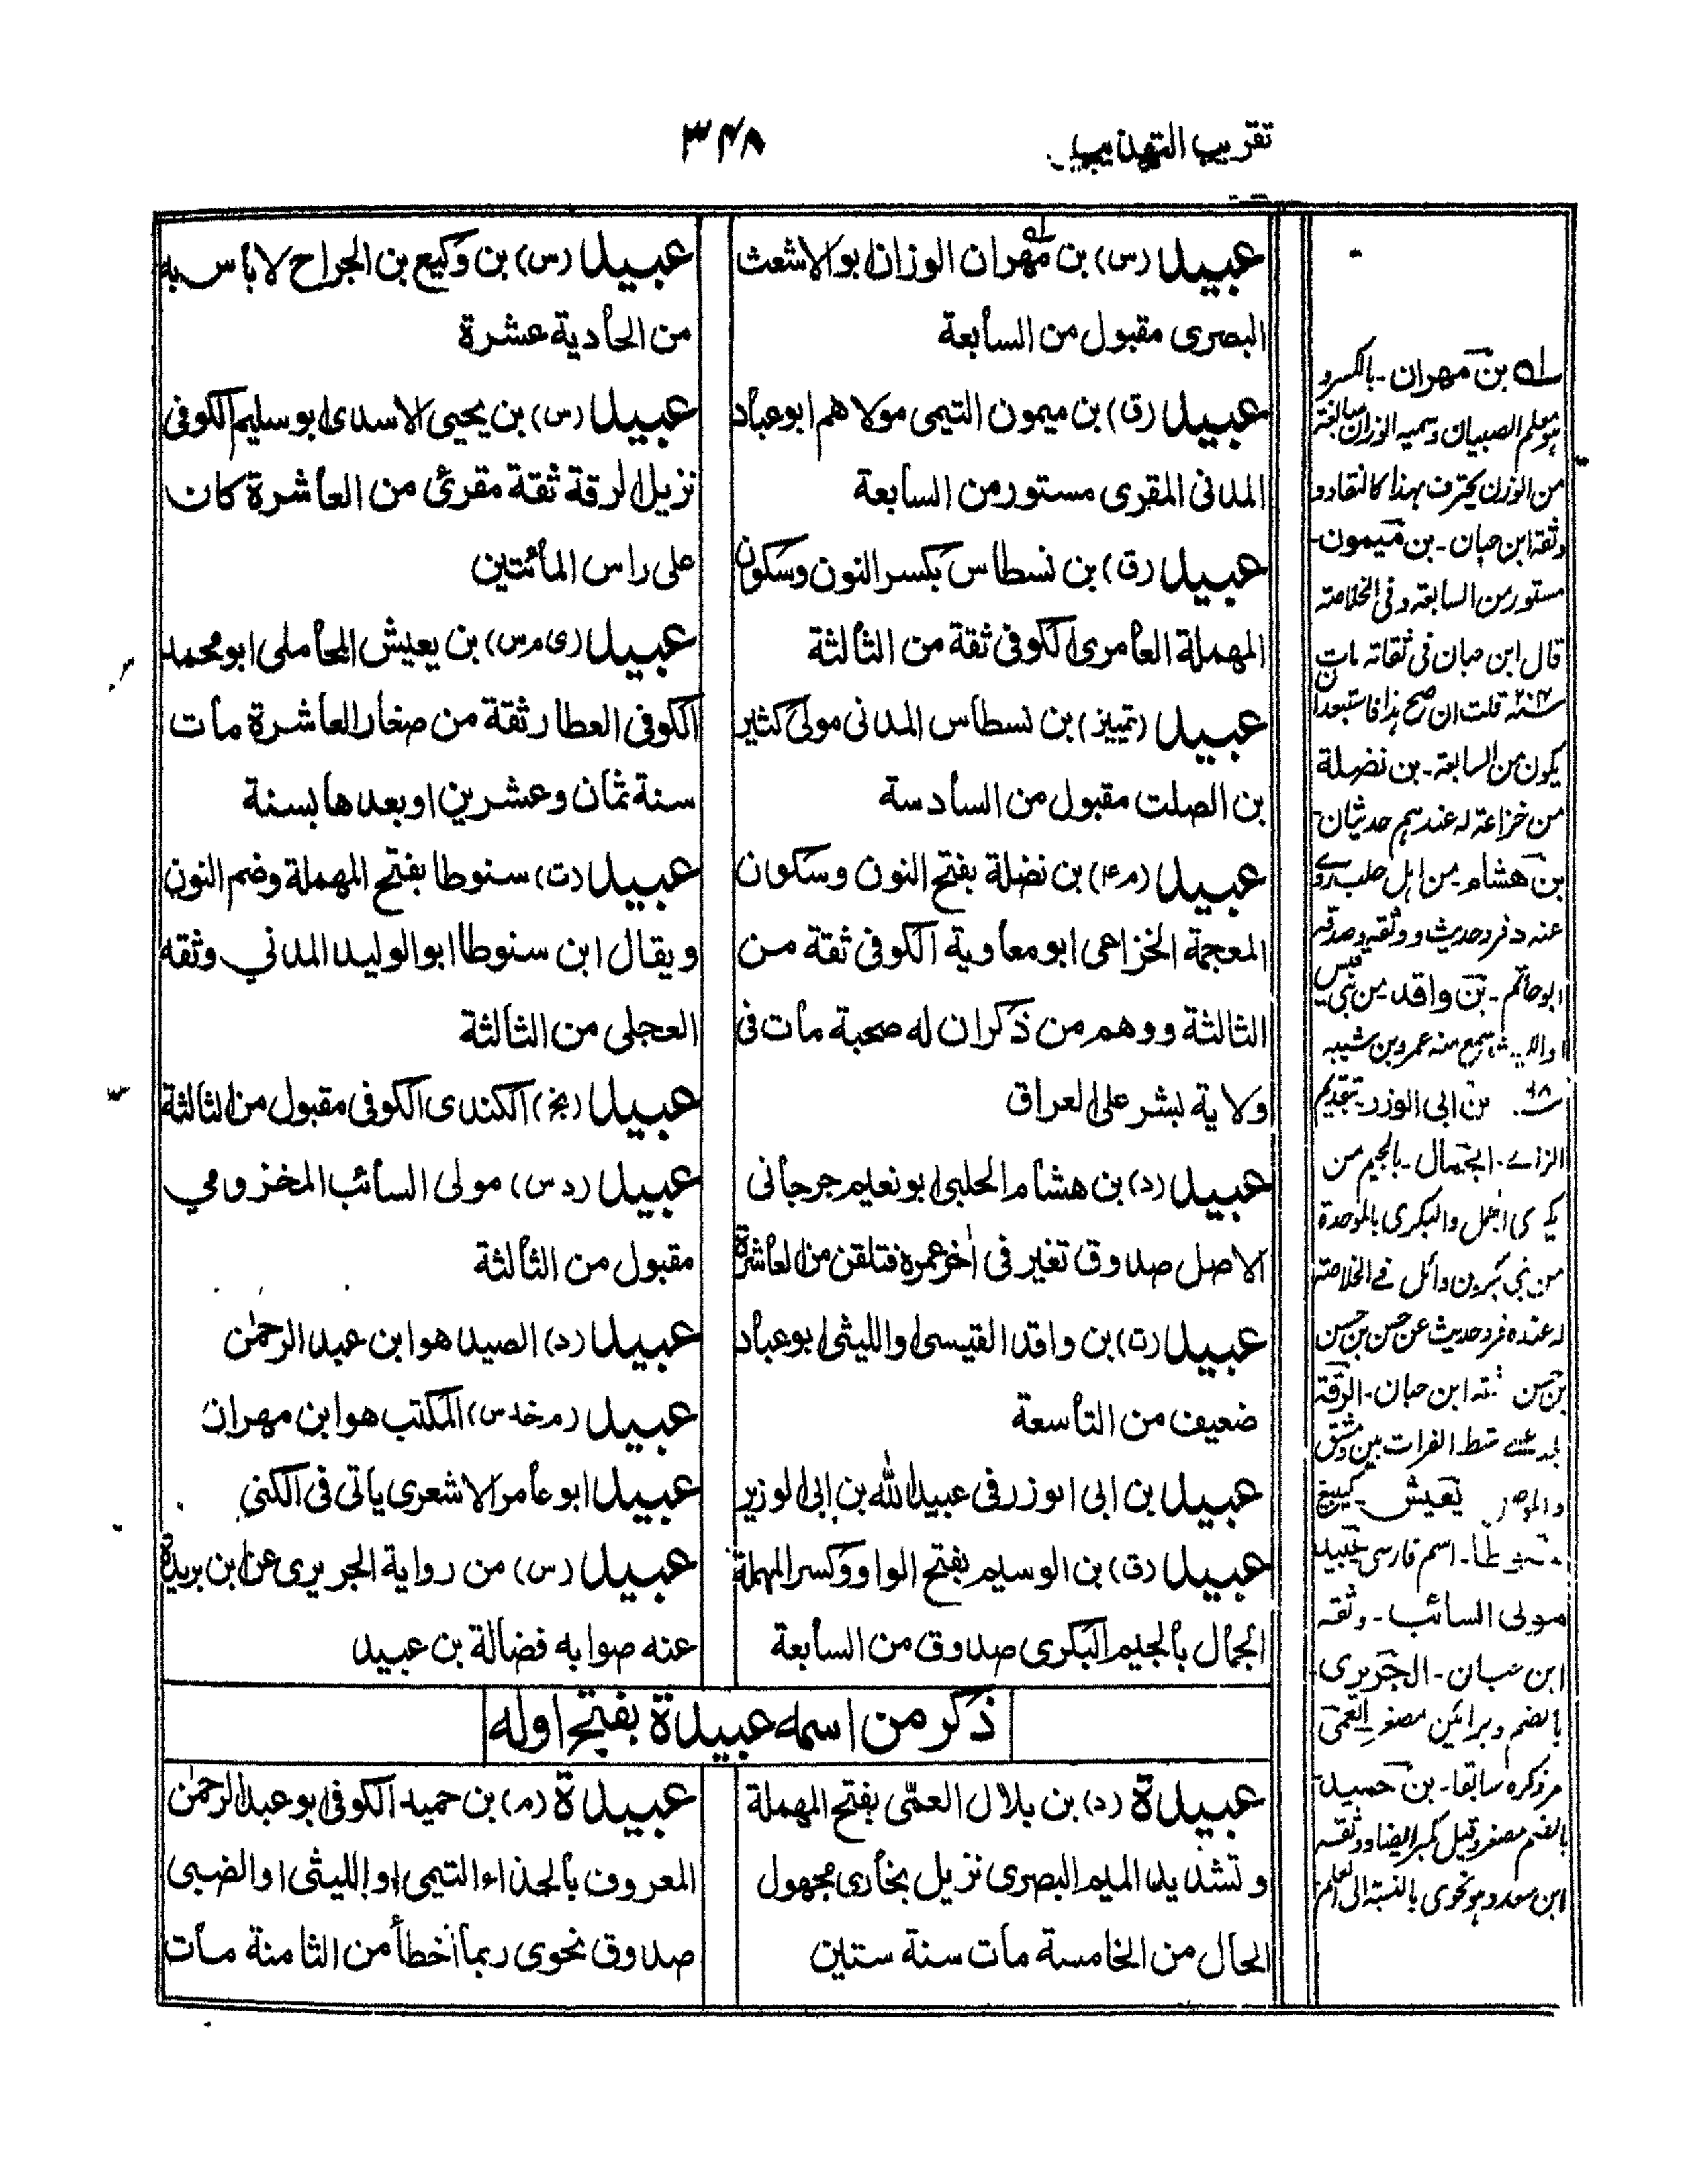 تقريب التهذيب
٣٤٨
عبيد (س) بن مهران الوزان ابو الاشعث
البصرى مقبول من السابعة
عبيد (ق) بن ميمون التيمى مولاهم ابو عباد
المدنى المقرى مستور من السابعة
عبيد (ق) بن نسطاس بكسر النون وسكون
المهملة العامرى الكوفى ثقة من الثالثة
عبيد (تمييز) بن نسطاس المدنى مولى كثير
بن الصلت مقبول من السادسة
عبيد (م ۴) بن نضلة بفتح النون وسكون
المعجمة الخزاعى ابو معاوية الكوفى ثقة من
الثالثة ووهم من ذكر ان له صحبة مات فى
ولاية بشر على العراق
عبيد (د) بن هشام الحلبى ابو نعيم جرجانى
الاصل صدوق تغير فى اٰخر عمره فتلقن من العاشرة
عبيد (ت) بن واقد القيسى او الليثى ابو عباد
ضعيف من التاسعة
عبيد بن ابى الوزر فى عبيد الله بن ابى الوزير
عبيد (ق) بن الوسيم بفتح الواو وكسر المهملة
الجمال بالجيم البكرى صدوق من السابعة
عبيد (س) بن وكيع بن الجراح لا بأس به
من الحادية عشرة
عبيد (س) بن يحيى الاسدى ابو سليم الكوفى
نزيل الرقة ثقة مقرئ من العاشرة كان
على راس المائتين
عبيد (ى م س) بن يعيش المحاملى ابو محمد
الكوفى العطار ثقة من صغار العاشرة مات
سنة ثمان وعشرين او بعدها بسنة
عبيد (ت) سنوطا بفتح المهملة وضم النون
ويقال ابن سنوطا ابو الوليد المدني وثقه
العجلى من الثالثة
عبيد (بخ) الكندى الكوفى مقبول من الثالثة
عبيد (د س) مولى السائب المخزومي
مقبول من الثالثة
عبيد (د) الصيد هو ابن عبد الرحمٰن
عبيد (م خد س) المكتب هو ابن مهران
عبيد ابو عامر الاشعرى ياتى فى الكنى
عبيد (س) من رواية الجريرى عن ابن بريدة
عنه صوابه فضالة بن عبيد
ذكر من اسمه عبيدة بفتح اوله
عبيدة (د) بن بلال العمّى بفتح المهملة
وتشديد الميم البصرى نزيل بخارى مجهول
الحال من الخامسة مات سنة ستين
عبيدة (م) بن حميد الكوفى ابو عبد الرحمٰن
المعروف بالحذاء التيمى او الليثى او الضبى
صدوق نحوى ربما أخطأ من الثامنة مات
له بن مهران - بالكسر و
هو معلم الصبيان وتسميه الوزان مبالغة
من الوزن يحترف بهذا كالنقاد و
وثقه ابن حبان - بن ميمون -
مستور من السابعة وفى الخلاصة
قال ابن حبان فى ثقاته مات
قلت ان صح هذا فاستبعد ان
يكون من السابعة - بن نضلة
من خزاعة له عندهم حديثان -
بن هشام - من اهل حلب روى
عنه د فرد حديث ووثقه وصدقه
ابو حاتم - بن واقد - من بنى قيس
سمع منه عمرو بن شيبه
بن ابى الوزر - بتقديم
الزاے - الجمال - بالجيم من
الجمل والبكرى بالموحدة
من بنى بكر بن وائل فے الخلاصة
له عنده فرد حديث عن حسن بن حسن
بن حسن ابن حبان - الرقة
شط الفرات بين دمشق
يعيش -
اسم فارسى عبيد
مولى السائب - وثقه
ابن حبان - الجريرى -
بالضم وبرائين مصغر - العمى
مر ذكره سابقا - بن حميد -
بالضم مصغر وقيل كبر ايضا ووثقه
ابن سعد وهو نحوى بالنسبة الى العلم